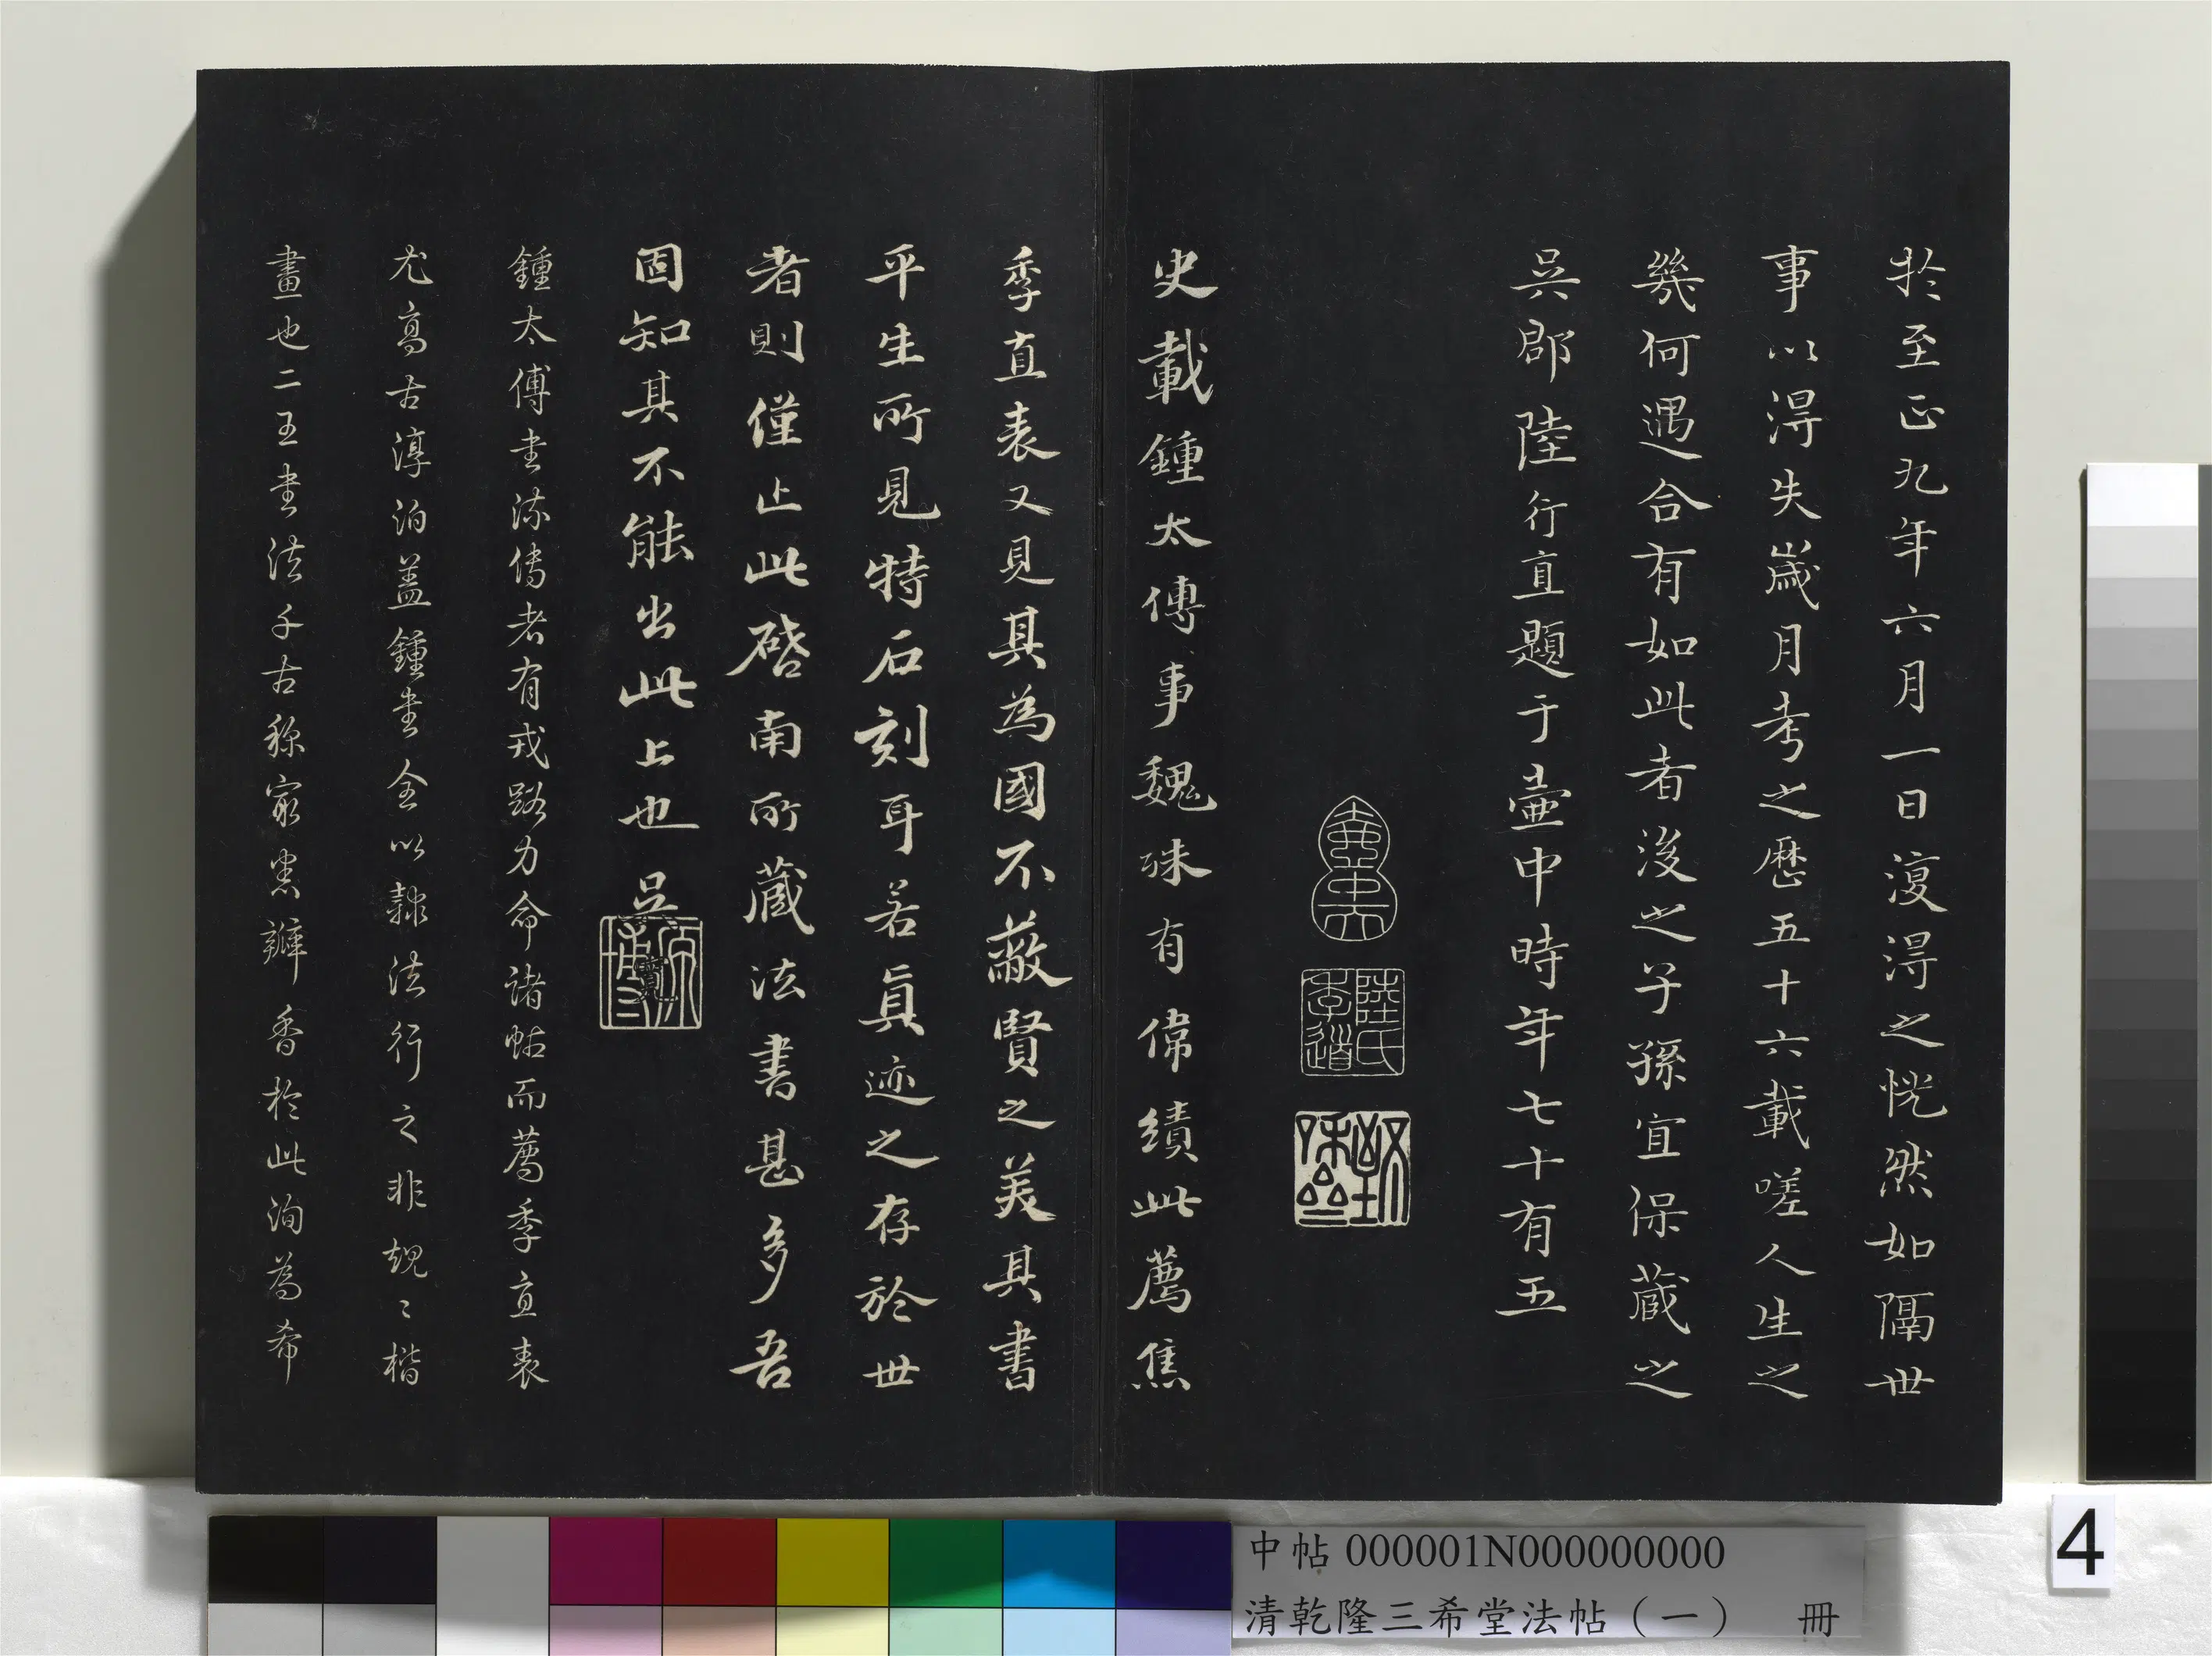 於至正九年六月一日復得之恍然如隔世
事以得失歲月考之歷五十六載嗟人生之
幾何遇合有如此者後之子孫宜保藏之
吳郡陸行直題于壺中時年七十有五
壺中天
陸氏季道
史載鍾太傅事魏殊有偉績此薦焦
季直表又見其為國不蔽賢之美其書
平生所見特石刻耳若真迹之存於世
者則僅止此啓南所藏法書甚多吾
固知其不能出此上也吳寬
原博
鍾太傅書流傳者有戎路力命諸帖而薦季直表
尤高古淳泊蓋鍾書全以隸法行之非規〻楷
畫也二王書法千古稱最悉瓣香於此洵為希
中帖 000001N000000000
清乾隆三希堂法帖（一） 冊
4